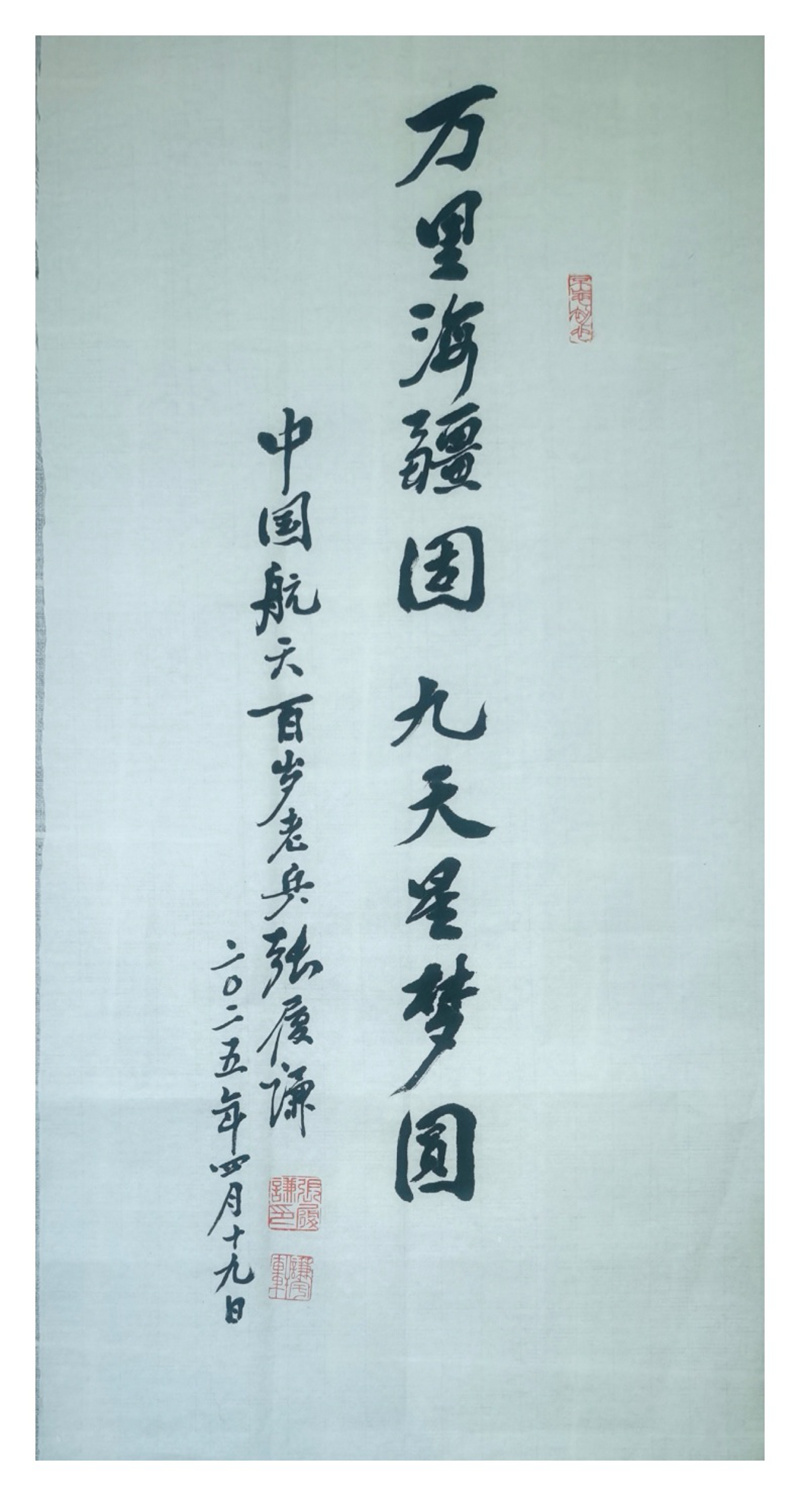 万里海疆固 九天星梦圆
中国航天百岁老兵张履谦
二〇二五年四月十九日
張履謙印